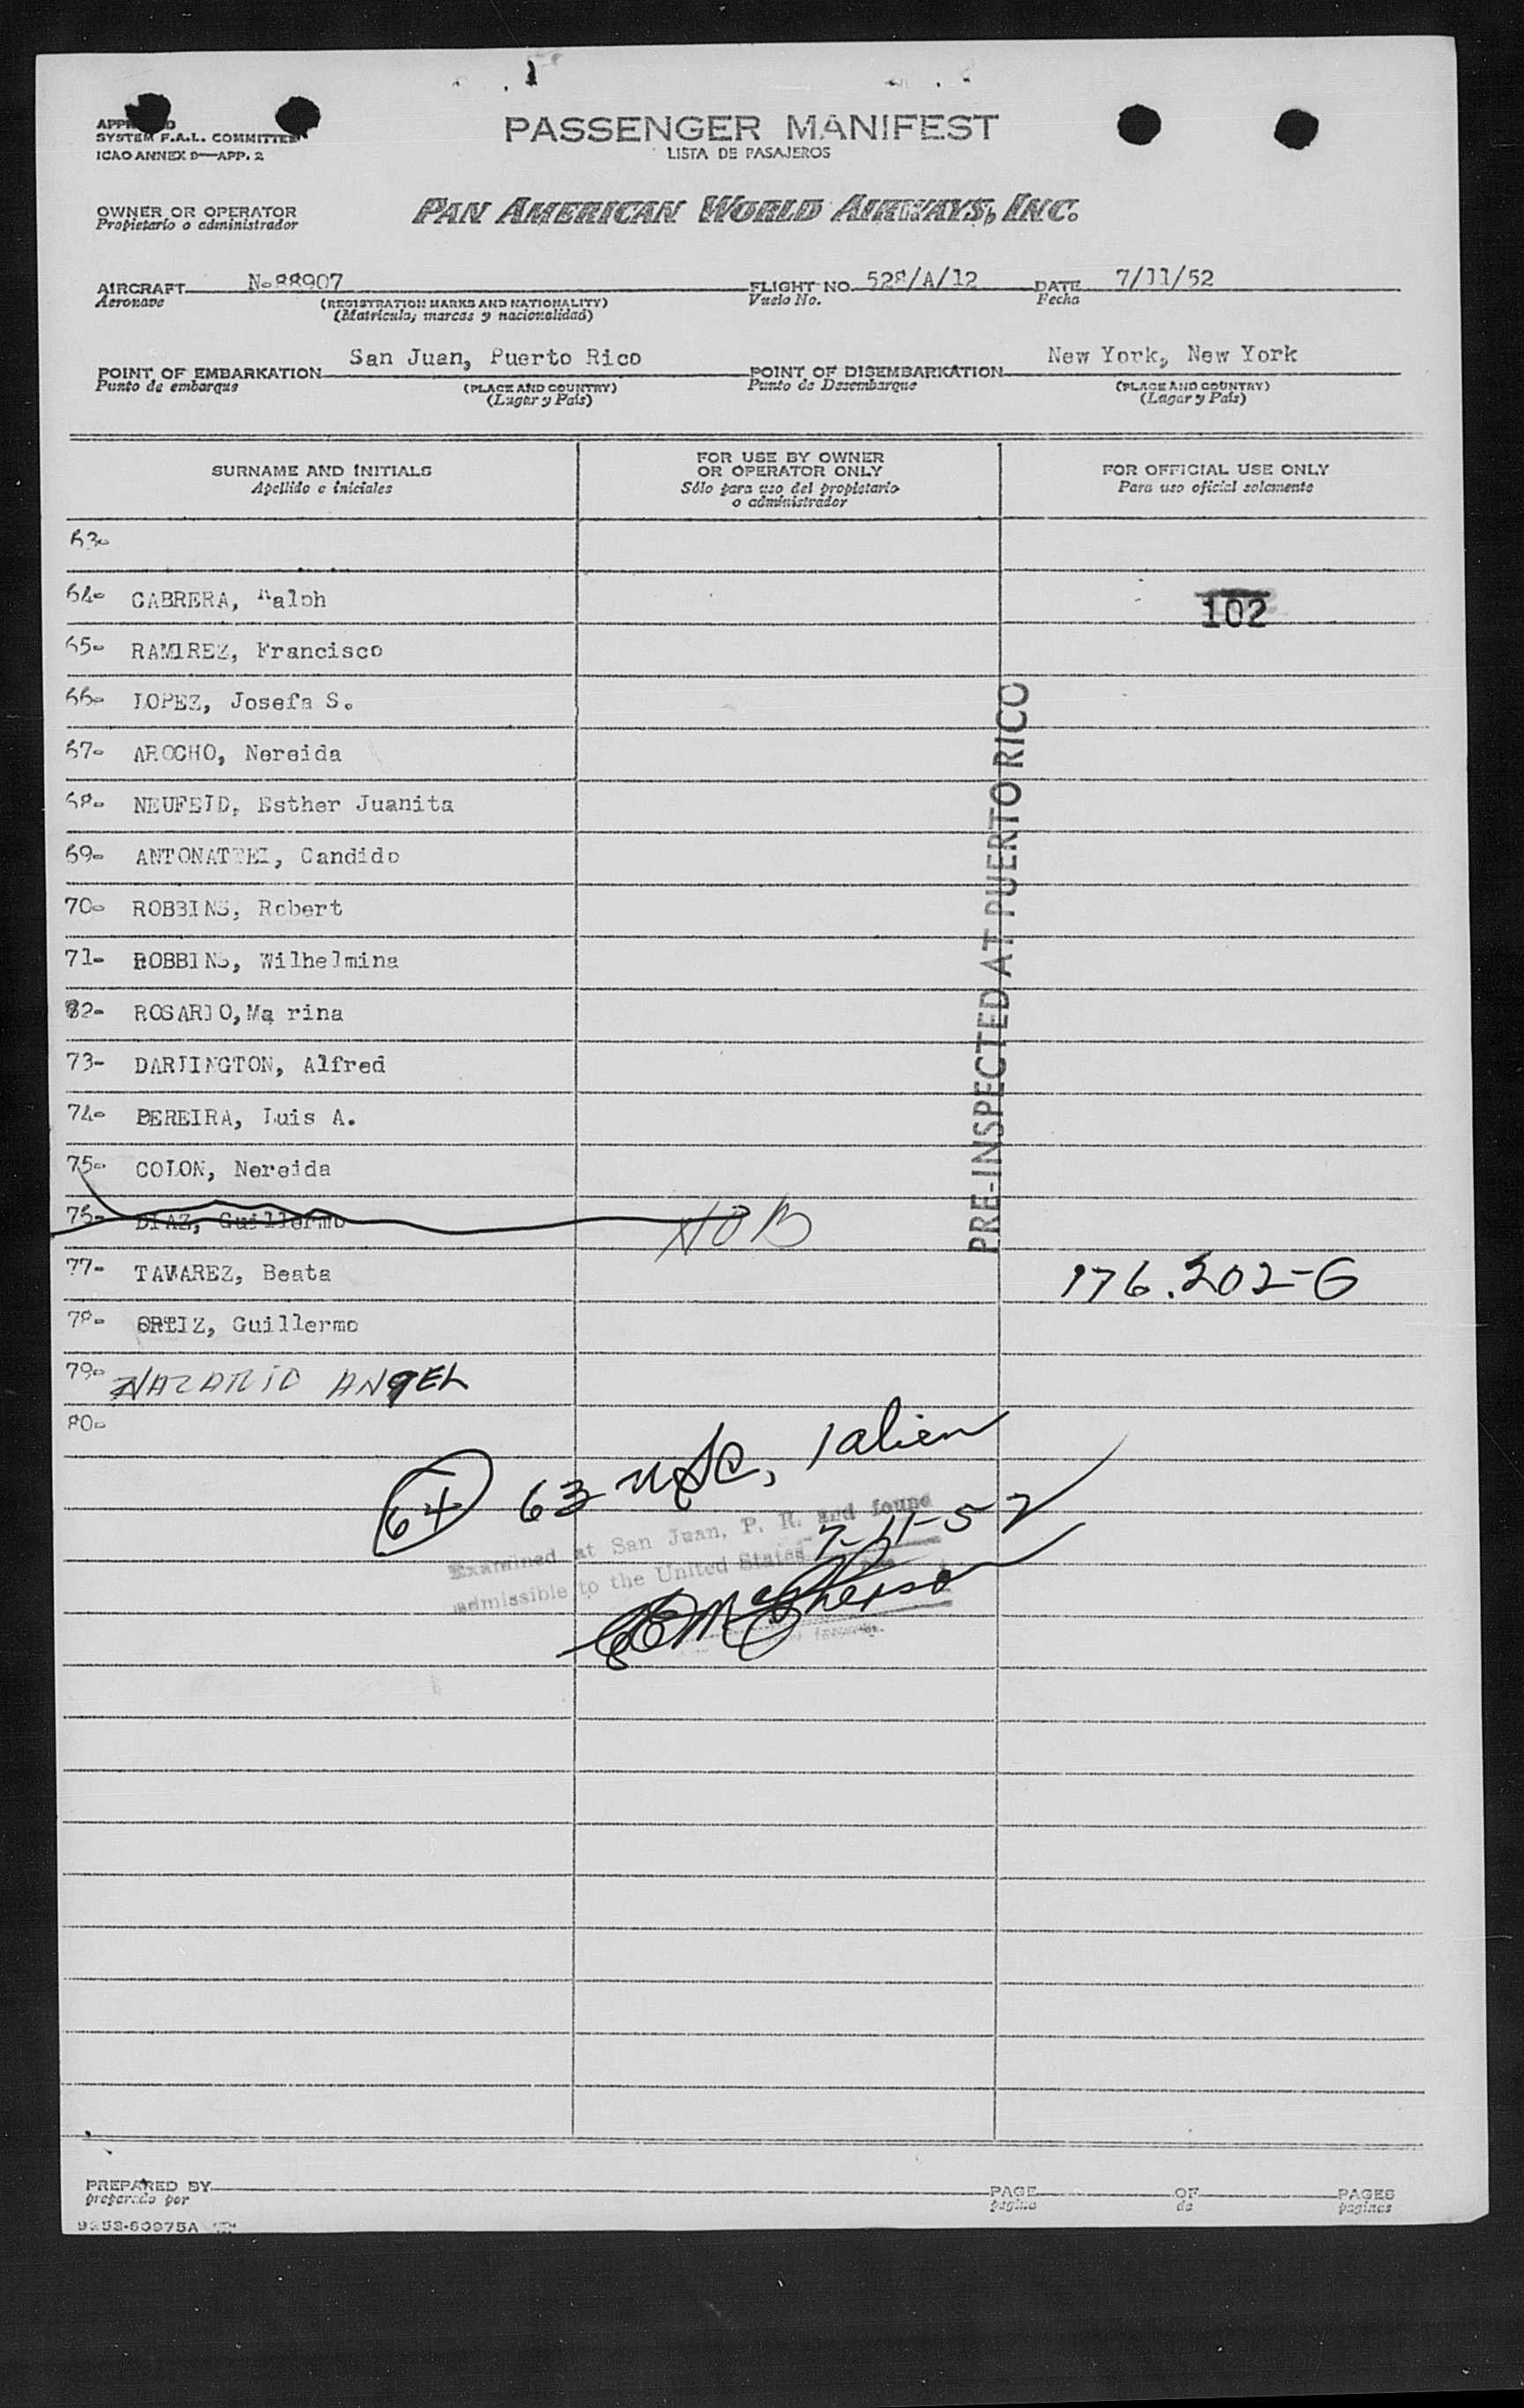 PASSENGER MANIFEST
LISTA DE PASAJEROS
SYSTEM F.A.L. COMMITTEE
ICAO ANNEX 9—APP. 2
OWNER OR OPERATOR
Propietario o administrador
PAN AMERICAN WORLD AIRWAYS, INC.
AIRCRAFT N-88907 FLIGHT NO. 528/A/12 DATE 7/11/52
Aeronave (REGISTRATION MARKS AND NATIONALITY) Vuelo No. Fecha
(Matricula, marcas y nacionalidad)
POINT OF EMBARKATION San Juan, Puerto Rico POINT OF DISEMBARKATION New York, New York
Punto de embarque (PLACE AND COUNTRY) Punto de Desembarque (PLACE AND COUNTRY)
(Lugar y País) (Lugar y País)
SURNAME AND INITIALS
Apellido e iniciales
FOR USE BY OWNER
OR OPERATOR ONLY
Sólo para uso del propietario
o administrador
FOR OFFICIAL USE ONLY
Para uso oficial solamente
63-
64- CABRERA, Ralph
102
65- RAMIREZ, Francisco
66- LOPEZ, Josefa S.
67- AROCHO, Nereida
68- NEUFELD, Esther Juanita
69- ANTONATTEI, Candido
70- ROBBINS, Robert
71- ROBBINS, Wilhelmina
72- ROSARIO, Ma rina
73- DARLINGTON, Alfred
74- PEREIRA, Luis A.
75- COLON, Nereida
76- DIAZ, Guillermo NOB
77- TAVAREZ, Beata 176.202-G
78- ORTIZ, Guillermo
79- NAZARIO ANGEL
80-
PRE-INSPECTED AT PUERTO RICO
64 63 USC, 1 alien
Examined at San Juan, P. R. and found
7-11-52
admissible to the United States
PREPARED BY PAGE OF PAGES
preparado por página de páginas